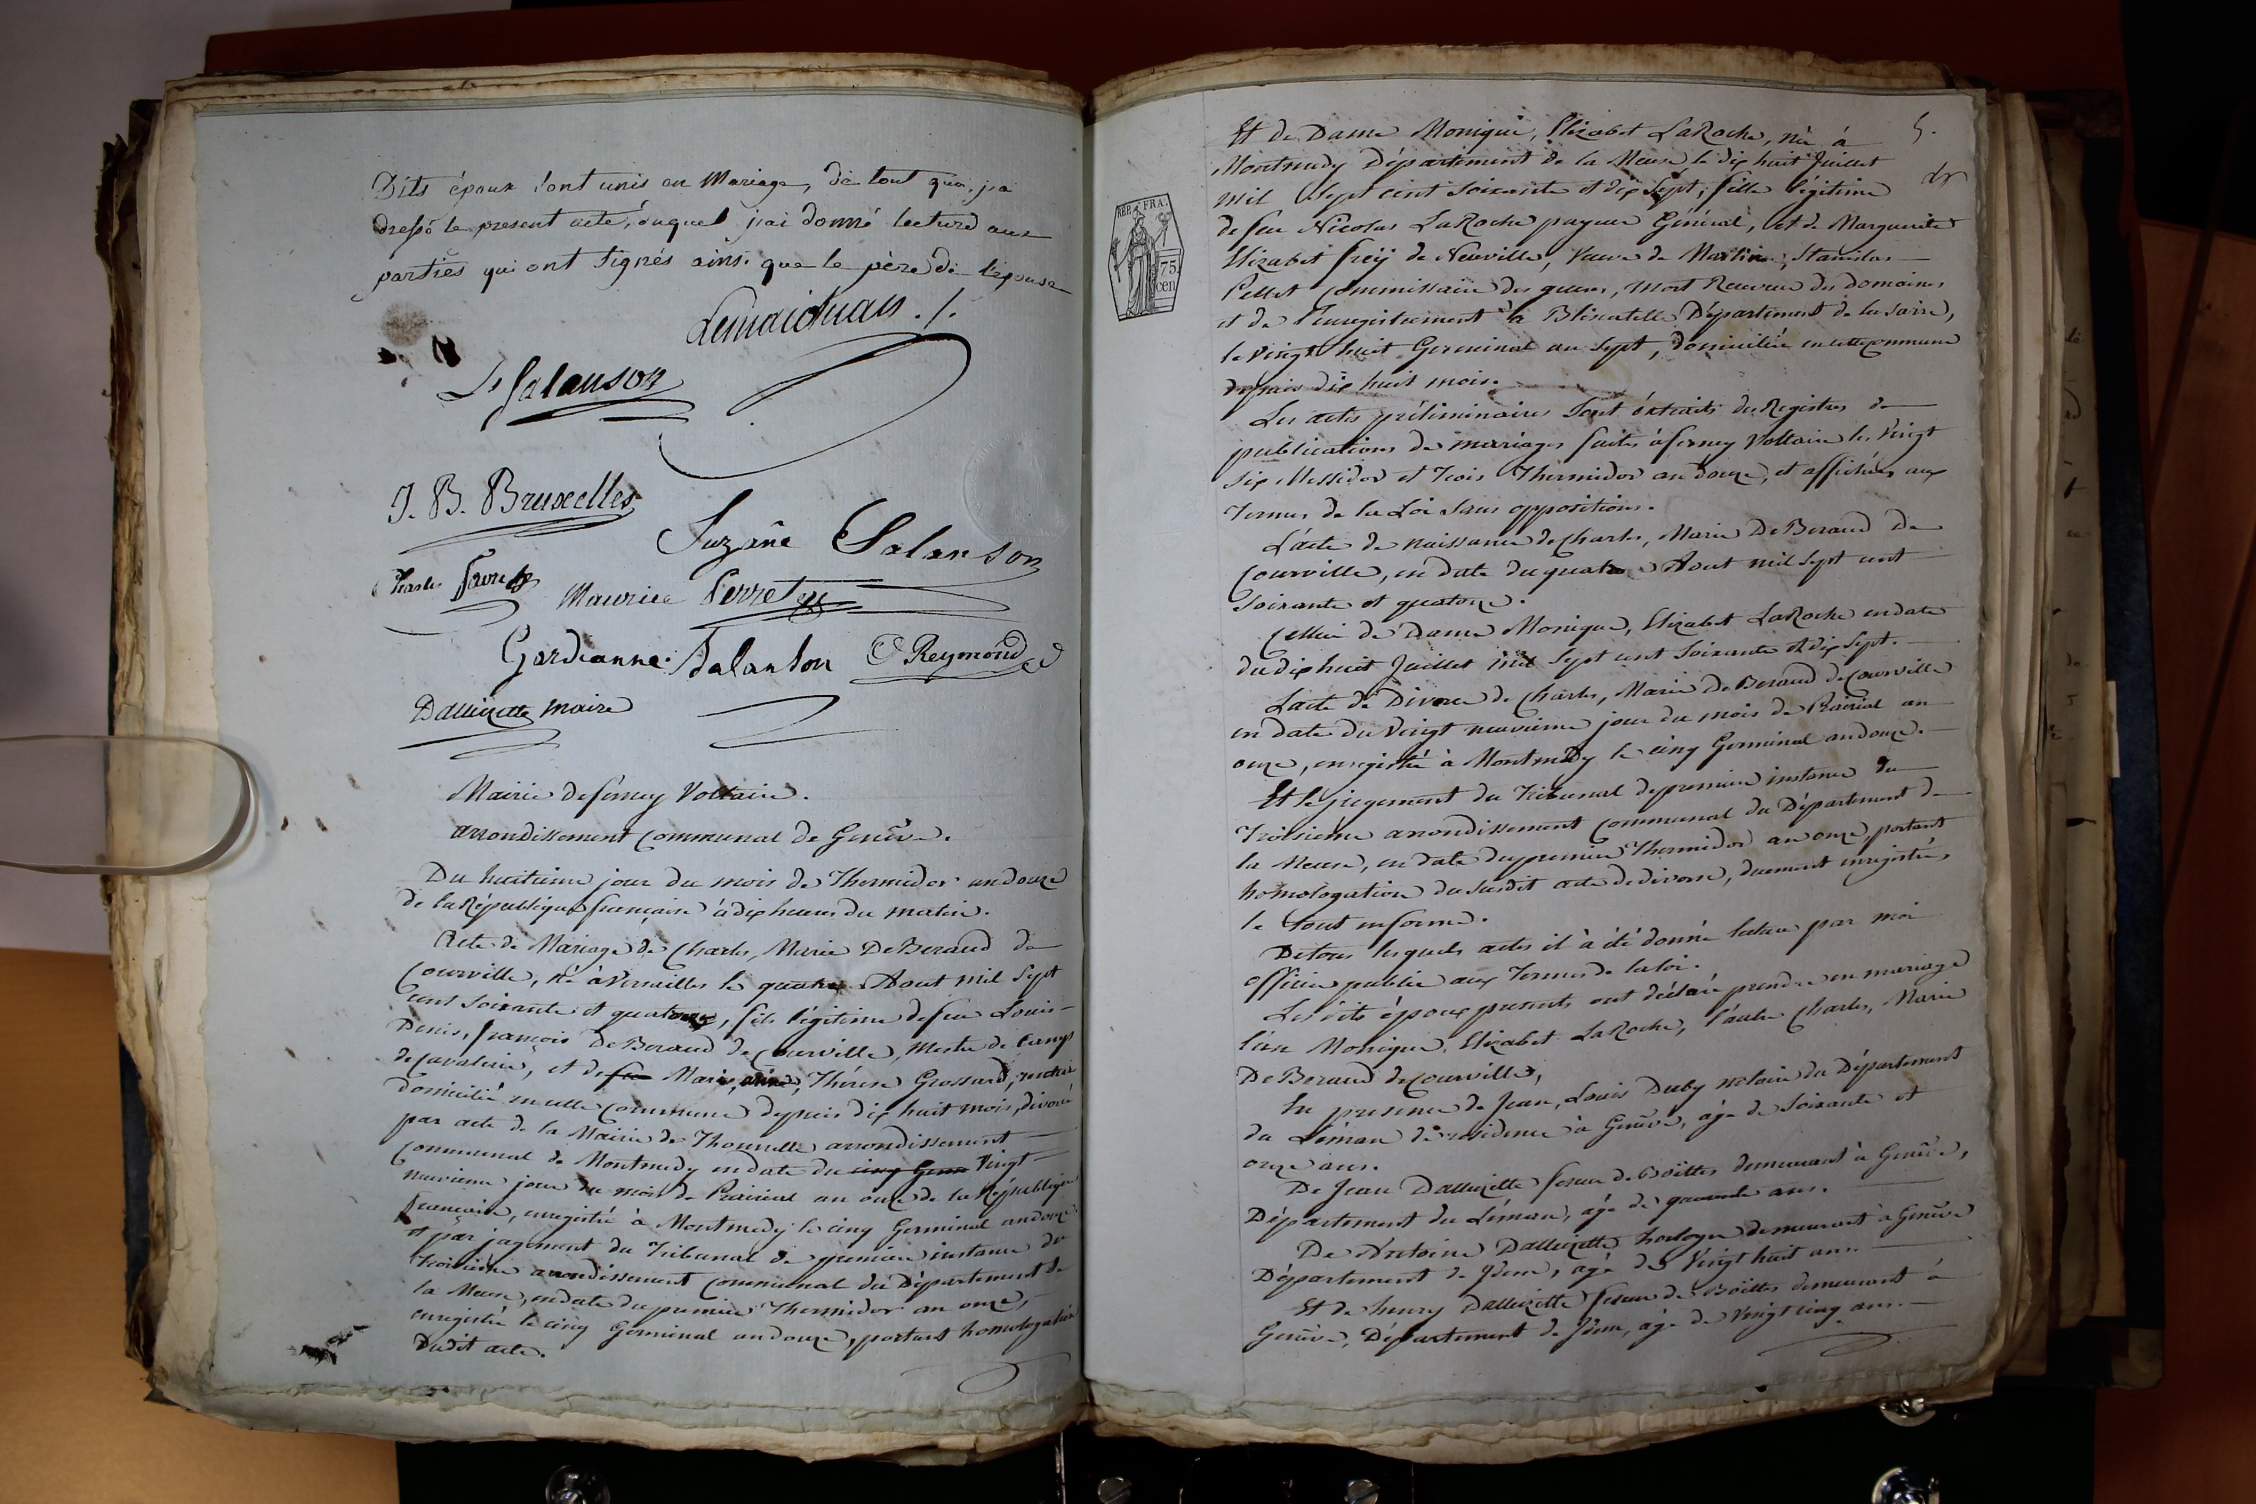 Dits époux sont unis en Mariage, de tout quoi, j'ai
dressé le present acte, auquel j'ai donné lecture aux
parties qui ont signés ainsi que le père de l'épouse
Lemaichuan ./.
Ls Salanson
J. B. Bruxelles
Suzâne Salanson
Charles
Maurice Perret
Gardianne. Salanson
Reymond
Dallizette maire
Mairie de ferney Voltaire.
arrondissement Communal de Genêve.
Du huitieme jour du mois de Thermidor an douze
de la République française à dix heures du matin.
Acte de Mariage de Charles, Marie DeBeraud de
Courville, né à Versailles le quatre Aout mil Sept
cent Soixante et quatorze, fils légitime de feu Louis-
Denis, françois DeBeraud de Courville, Mestre de Camp
de Cavalerie, et de feu Marie, anne, Thérese Grossard, rentier
domicilié en cette Commune depuis dix huit mois, divorcé
par acte de la Mairie de Thonnelle arrondissement
Communal de Montmedy en date du cinq Germ Vingt
neuvieme jour du mois de Prairial an onze de la République
française, enregistré à Montmedy le cinq Germinal an douze
et par jugement du Tribunal de premiere instance du
troisieme arrondissement Communal du Département de
la Meuse, en date du premier Thermidor an onze,
enregistré le cinq Germinal an douze, portant homologation
dudit acte.
5.
REP. FRA.
75
cen
Et de Dame Monique, Elizabet LaRoche, née à
Montmedy Département de la Meuse le dix huit Juillet
mil Sept cent Soixante et dix Sept, fille légitime
de feu Nicolas LaRoche payeur Général, et de Marguerite
Elizabet de Neuville, Veuve de Martin, Stanislas
Pellet Commissaire des guerres, mort Receveur des domaines
et de l'enregistrement à Département de la Sarre,
le Vingt huit Germinal an Sept, domiciliée en cette Commune
depuis dix huit mois.
Les actes préliminaires sont éxtraits des Registres de
publications de mariages faites à ferney Voltaire les Vingt
Six Messidor et trois Thermidor an douze, et affichées aux
termes de la Loi sans oppositions.
L'acte de naissance de Charles, Marie DeBeraud De
Courville, en date du quatre Aout mil Sept cent
Soixante et quatorze.
Cellui de Dame Monique, Elizabet LaRoche en date
du dix huit Juillet mil Sept cent Soixante et dix Sept.
L'acte de Divorce de Charles, Marie DeBeraud de Courville
en date du Vingt neuvieme jour du mois de Prairial an
onze, enregistré à Montmedy le cinq Germinal an douze.
Et le jugement du Tribunal de premiere instance du
Troisieme arrondissement Communal du Département de
la Meuse, en date du premier Thermidor an onze, portant
homologation du susdit acte de divorce, duement enregistrés,
le tout en forme.
De tous lesquels actes il à été donné lecture par moi
officier public aux Termes de la loi.
Les dits époux presents ont déclaré prendre en mariage
l'un Monique, Elizabet LaRoche, l'autre Charles, Marie
DeBeraud de Courville,
En presence de Jean, Louis Duby notaire du Département
du Léman de residence à Genêve, âgé de Soixante et
onze ans.
De Jean Dallizette feseur de Boëttes demeurant à Genêve,
Département du Léman, âgé de quarante ans.
De Antoine Dallizette horloger demeurant à Genêve
Département de idem, agé de Vingt huit ans.
Et de henry Dallizette feseur de Boëttes demeurant à
Genêve, Département de idem, âgé de Vingt cinq ans.